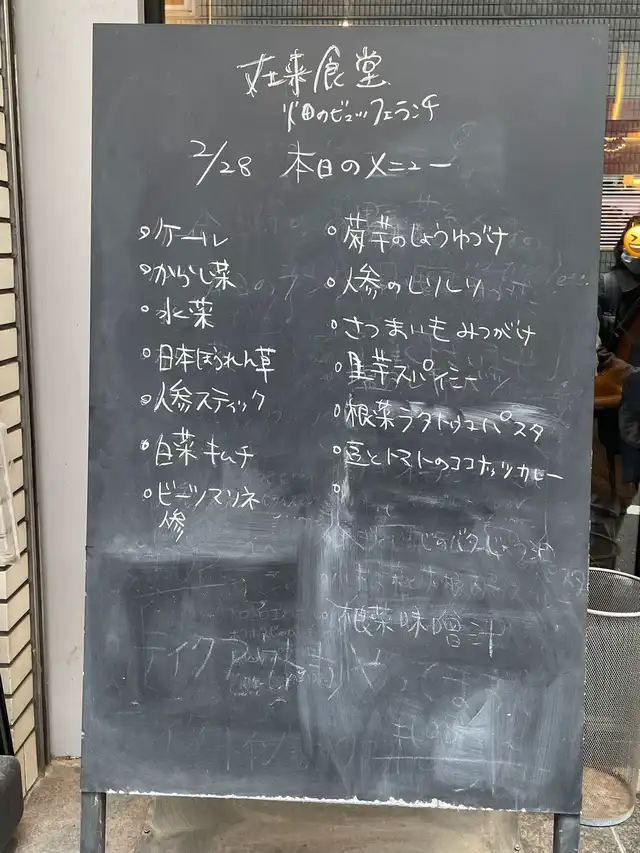 在来食堂
火田のビュッフェランチ
2/28 本日のメニュー
ケール
からし菜
水菜
日本ほうれん草
人参スティック
白菜キムチ
ビーツマリネ
人参
菊芋のしょうゆづけ
人参のしりしり
さつまいもみつがけ
里芋スパイシー
根菜ラタトゥユパスタ
豆とトマトのココナッツカレー
根菜味噌汁
テイク